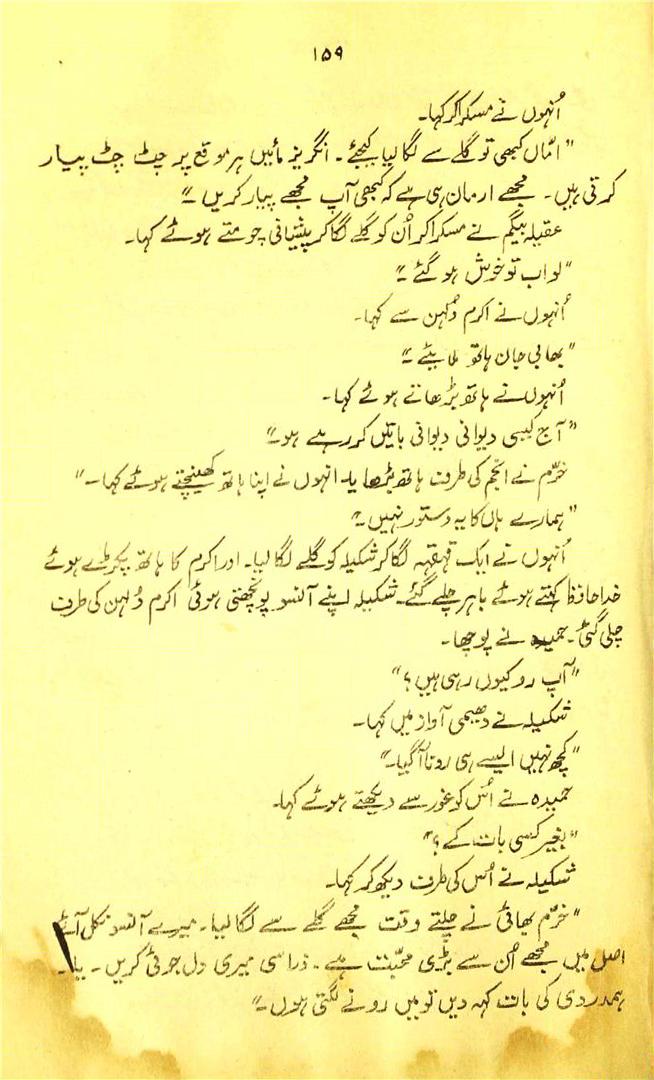 ۱۵۹
اُنہوں نے مسکرا کر کہا۔
"امّاں کبھی تو گلے سے لگا لیا کیجئے۔ انگریز مائیں ہر موقع پر چٹ چٹ پیار
کرتی ہیں۔ مجھے ارمان ہی ہے کہ کبھی آپ مجھے پیار کریں۔"
عقیلہ بیگم نے مسکرا کر اُن کو گلے لگا کر پیشانی چومتے ہوئے کہا۔
"لو اب تو خوش ہو گئے۔"
اُنہوں نے اکرم دُلہن سے کہا۔
"بھابی جان ہاتھ ملایئے۔"
اُنہوں نے ہاتھ بڑھاتے ہوئے کہا۔
"آج کیسی دیوانی دیوانی باتیں کر رہے ہو۔"
خرّم نے انجم کی طرف ہاتھ بڑھایا۔ انہوں نے اپنا ہاتھ کھینچتے ہوئے کہا۔"
"ہمارے ہاں کا یہ دستور نہیں۔"
اُنہوں نے ایک قہقہہ لگا کر شکیلہ کو گلے لگا لیا۔ اور اکرم کا ہاتھ پکڑے ہوئے
خدا حافظ کہتے ہوئے باہر چلے گئے۔ شکیلہ اپنے آنسو پونچھتی ہوئی اکرم دُلہن کی طرف
چلی گئی۔ حمیدہ نے پوچھا۔
"آپ رو کیوں رہی ہیں؟"
شکیلہ نے دھیمی آواز میں کہا۔
"کچھ نہیں ایسے ہی رونا آگیا۔"
حمیدہ نے اُس کو غور سے دیکھتے ہوئے کہا۔
"بغیر کسی بات کے؟"
شکیلہ نے اُس کی طرف دیکھ کر کہا۔
"خرّم بھائی نے چلتے وقت مجھے گلے سے لگا لیا۔ میرے آنسو نکل آئے
اصل میں مجھے اُن سے بڑی محبّت ہے۔ ذرا سی میری دل جوئی کریں۔ یا
ہمدردی کی بات کہہ دیں تو میں رونے لگتی ہوں۔"